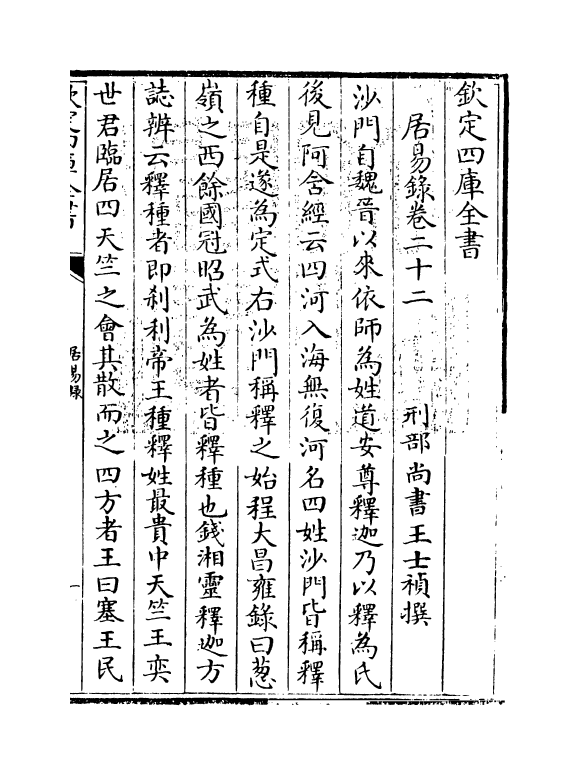 欽定四庫全書
居易錄卷二十二 刑部尚書王士禎撰
沙門自魏晉以來依師為姓道安尊釋迦乃以釋為氏
後見阿含經云四河入海無復河名四姓沙門皆稱釋
種自是遂為定式右沙門稱釋之始程大昌雍錄曰葱
嶺之西餘國冠昭武為姓者皆釋種也錢湘靈釋迦方
誌辨云釋種者即刹利帝王種釋姓最貴中天竺王奕
世君臨居四天竺之會其散而之四方者王曰塞王民
欽定四庫全書
居易錄
一